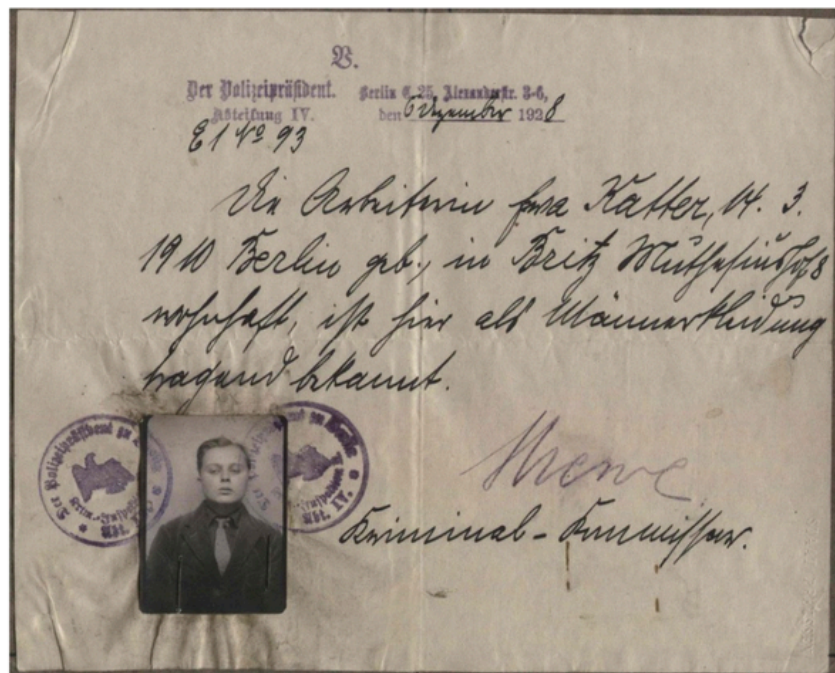 V.
Der Polizeipräsident.
Abteilung IV.
Berlin C. 25, Alexanderstr. 3-6,
den 6 Dezember 1928
E1 No 93
Die Arbeiterin Eva Katter, 14. 3.
1910 Berlin geb., in Britz Muthesiushof 8
wohnhaft, ist hier als Männerkleidung
tragend bekannt.
Kriminal-Kommissar.
Der Polizeipräsident zu
Abt. IV.